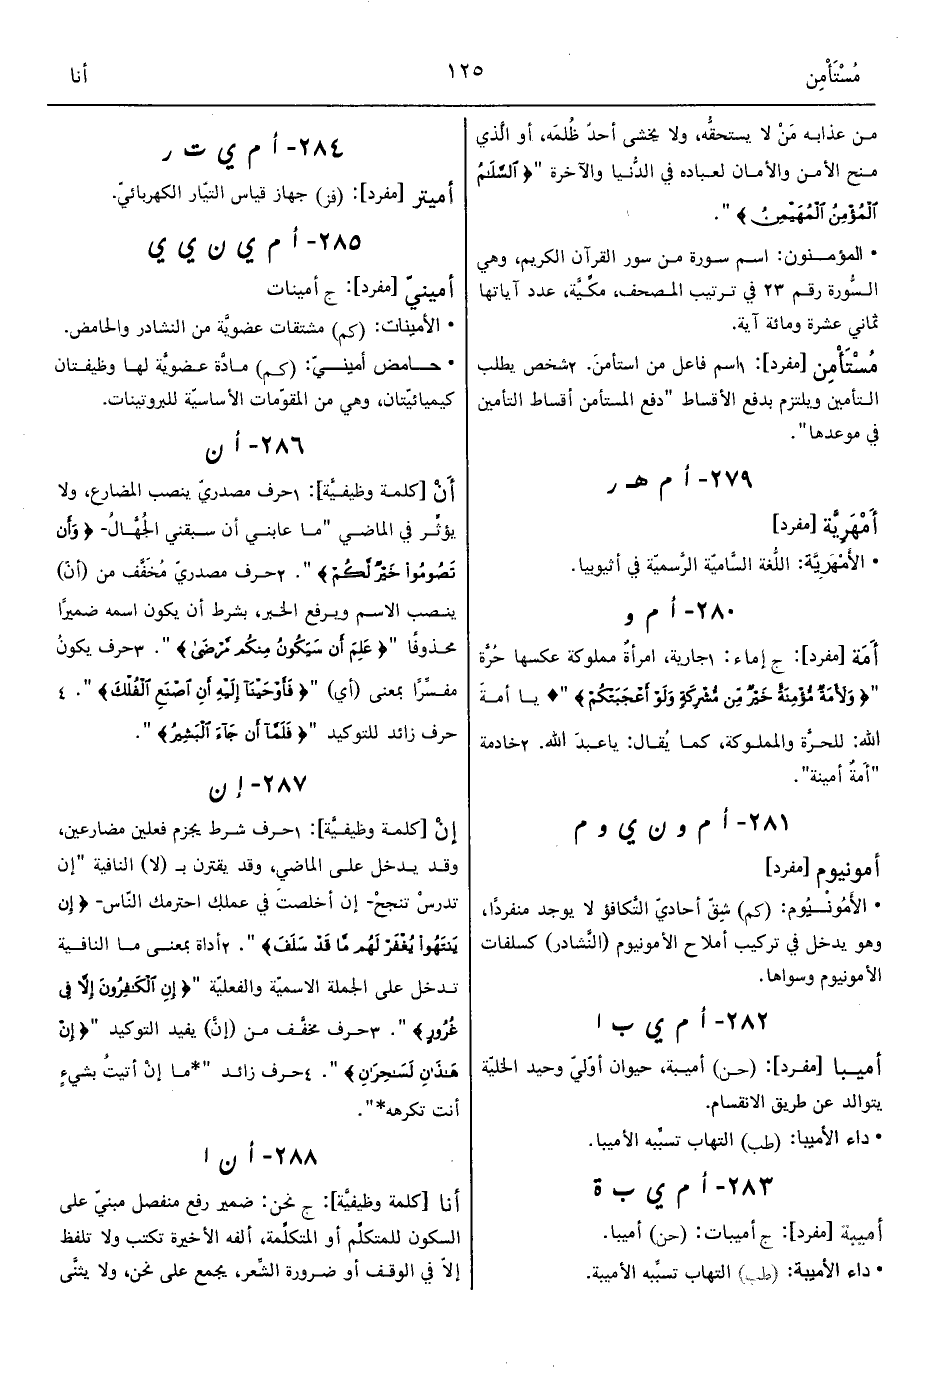 مُسْتَأْمِن
١٢٥
أنا
من عذابه مَنْ لا يستحقُّه، ولا يخشى أحدٌ ظُلمَه، أو الَّذي
منح الأمن والأمان لعباده في الدُّنيا والآخرة "﴿ ٱلسَّلَٰمُ
ٱلْمُؤْمِنُ ٱلْمُهَيْمِنُ ﴾".
• المؤمنون: اسم سورة من سور القرآن الكريم، وهي
السُّورة رقم ٢٣ في ترتيب المصحف، مكِّيَّة، عدد آياتها
ثماني عشرة ومائة آية.
مُسْتَأْمِن [مفرد]: ١اسم فاعل من استأمنَ. ٢شخص يطلب
التأمين ويلتزم بدفع الأقساط "دفع المستأمن أقساط التأمين
في موعدها".
٢٧٩- أ م هـ ر
أَمْهَرِيَّة [مفرد]
• الأَمْهَرِيَّة: اللُّغة السَّاميّة الرَّسميّة في أثيوبيا.
٢٨٠- أ م و
أَمَة [مفرد]: ج إماء: ١جارية، امرأةٌ مملوكة عكسها حُرَّة
"﴿ وَلَأَمَةٌ مُّؤْمِنَةٌ خَيْرٌ مِّن مُّشْرِكَةٍ وَلَوْ أَعْجَبَتْكُمْ ﴾"♦ يا أمةَ
الله: للحرَّة والمملوكة، كما يُقال: ياعبدَ الله. ٢خادمة
"أمةٌ أمينة".
٢٨١- أ م و ن ي و م
أمونيوم [مفرد]
• الأَمُونْيُوم: (كم) شِقّ أحاديّ التَّكافؤ لا يوجد منفردًا،
وهو يدخل في تركيب أملاح الأمونيوم (النَّشادر) كسلفات
الأمونيوم وسواها.
٢٨٢- أ م ي ب ا
أميبا [مفرد]: (حن) أميبة، حيوان أوّليّ وحيد الخليّة
يتوالد عن طريق الانقسام.
• داء الأميبا: (طب) التهاب تسبِّبه الأميبا.
٢٨٣- أ م ي ب ة
أميبة [مفرد]: ج أميبات: (حن) أميبا.
• داء الأميبة: (طب) التهاب تسبِّبه الأميبة.
٢٨٤- أ م ي ت ر
أميتر [مفرد]: (فز) جهاز قياس التيّار الكهربائيّ.
٢٨٥- أ م ي ن ي ي
أمينيّ [مفرد]: ج أمينات
• الأمينات: (كم) مشتقات عضويَّة من النشادر والحامض.
• حامض أمينيّ: (كم) مادَّة عضويَّة لها وظيفتان
كيميائيّتان، وهي من المقوّمات الأساسيّة للبروتينات.
٢٨٦- أ ن
أَنْ [كلمة وظيفيَّة]: ١حرف مصدريّ ينصب المضارع، ولا
يؤثِّر في الماضي "ما عابني أن سبقني الجُهَّالُ- ﴿ وَأَن
تَصُومُوا۟ خَيْرٌ لَّكُمْ ﴾". ٢حرف مصدريّ مُخَفَّف من (أنّ)
ينصب الاسم ويرفع الخبر، بشرط أن يكون اسمه ضميرًا
محذوفًا "﴿ عَلِمَ أَن سَيَكُونُ مِنكُم مَّرْضَىٰ ﴾". ٣حرف يكونُ
مفسِّرًا بمعنى (أي) "﴿ فَأَوْحَيْنَآ إِلَيْهِ أَنِ ٱصْنَعِ ٱلْفُلْكَ ﴾". ٤
حرف زائد للتوكيد "﴿ فَلَمَّآ أَن جَآءَ ٱلْبَشِيرُ ﴾".
٢٨٧- إ ن
إِنْ [كلمة وظيفيَّة]: ١حرف شرط يجزم فعلين مضارعين،
وقد يدخل على الماضي، وقد يقترن بـ (لا) النافية "إن
تدرسْ تنجحْ- إن أخلصتَ في عملك احترمك النّاس- ﴿ إِن
يَنتَهُوا۟ يُغْفَرْ لَهُم مَّا قَدْ سَلَفَ ﴾". ٢أداة بمعنى ما النافية
تدخل على الجملة الاسميّة والفعليّة "﴿ إِنِ ٱلْكَٰفِرُونَ إِلَّا فِى
غُرُورٍ ﴾". ٣حرف مخفَّف من (إنَّ) يفيد التوكيد "﴿ إِنْ
هَٰذَٰنِ لَسَٰحِرَٰنِ ﴾". ٤حرف زائد "*ما إنْ أتيتُ بشيءٍ
أنت تكرهه*".
٢٨٨- أ ن ا
أنا [كلمة وظيفيَّة]: ج نحن: ضمير رفع منفصل مبنيّ على
السكون للمتكلِّم أو المتكلِّمة، ألفه الأخيرة تكتب ولا تلفظ
إلاّ في الوقف أو ضرورة الشِّعر، يجمع على نحن، ولا يثنَّى